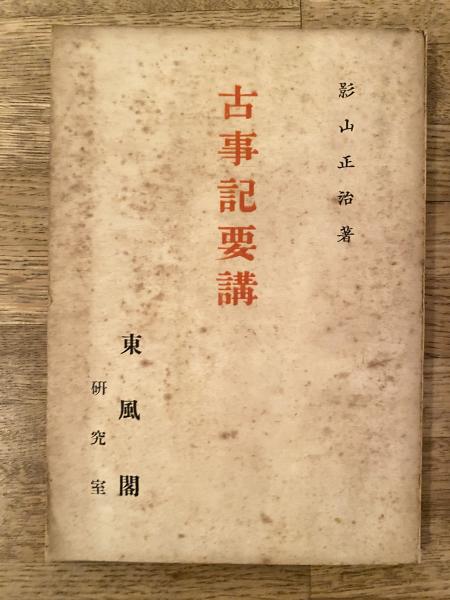 影山正治著
古事記要講
東風閣
研究室